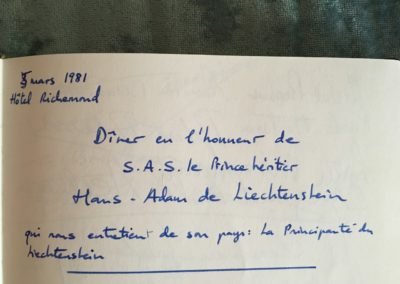 mars 1981
Hôtel Richemond
Dîner en l'honneur de
S.A.S. le Prince héritier
Hans-Adam de Liechtenstein
qui nous entretient de son pays: la Principauté du
Liechtenstein